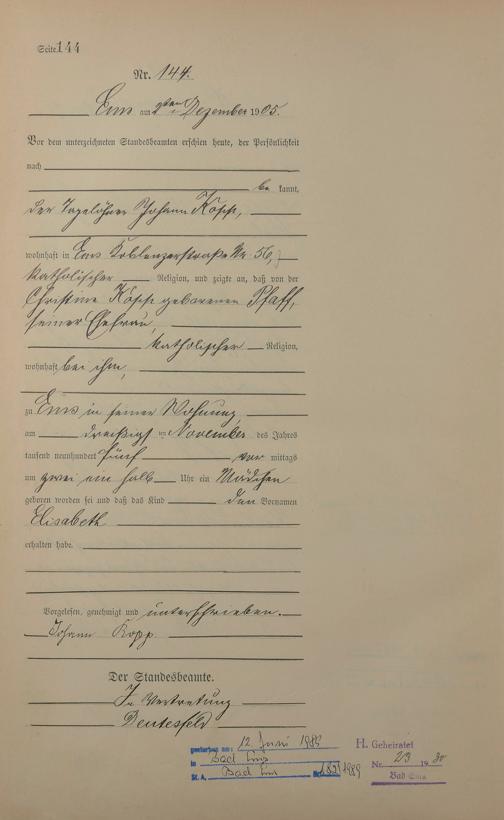 Seite 144
Nr. 144.
Ems am 2ten Dezember 1905.
Vor dem unterzeichneten Standesbeamten erschien heute, der Persönlichkeit
nach
be kannt,
der Tagelöhner Johann Kopp,
wohnhaft in Ems Koblenzerstraße Nr. 56,
katholischer Religion, und zeigte an, daß von der
Christine Kopp geborenen Pfaff,
seiner Ehefrau,
katholischer Religion,
wohnhaft bei ihm,
zu Ems in seiner Wohnung,
am dreißigst en November des Jahres
tausend neunhundert fünf vor mittags
um zwei ein halb Uhr ein Mädchen
geboren worden sei und daß das Kind den Vornamen
Elisabeth
erhalten habe.
Vorgelesen, genehmigt und unterschrieben.
Johann Kopp
Der Standesbeamte.
In Vertretung
gestorben am: 12. Juni 1989
in Bad Ems
St. A. Bad Ems Nr. 1989
H. Geheiratet
Nr. 23 19 30
Bad Ems